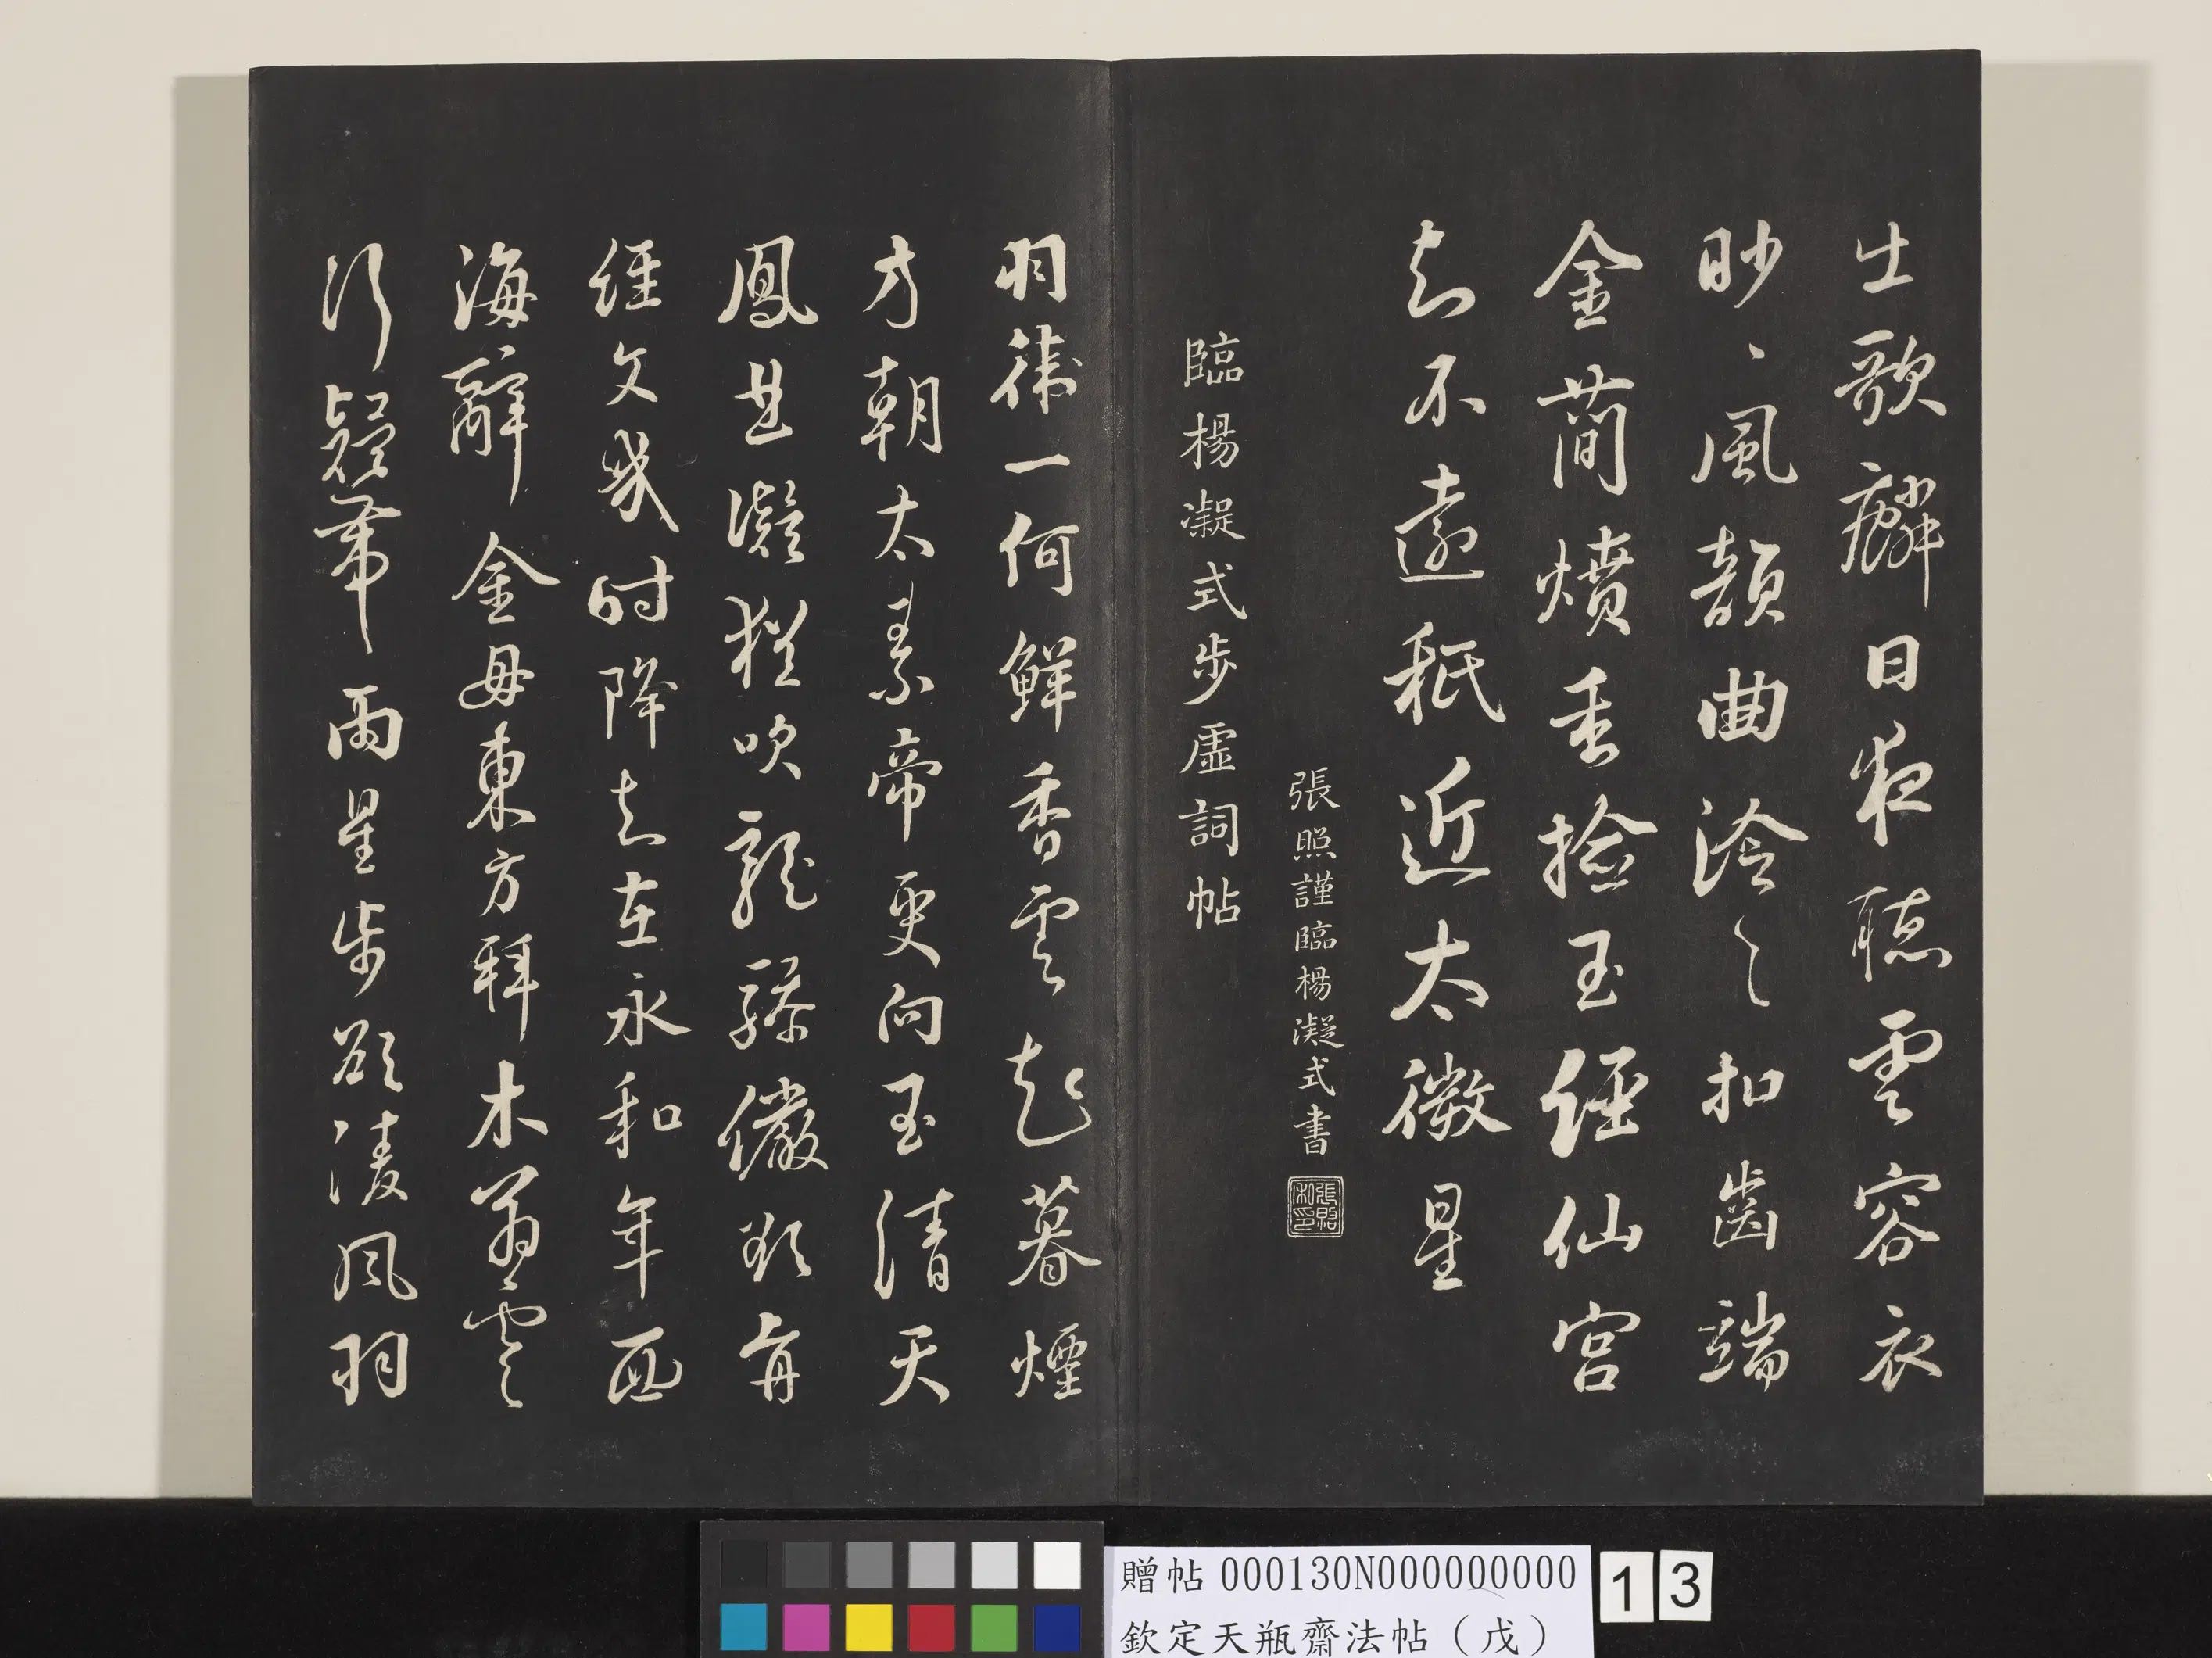 士歌麟日夜聽雲容衣
眇々風韻曲泠々扣齒端
金簡燌香撿玉經仙宮
知不遠秖近太微星
張照謹臨楊凝式書
張照私印
臨楊凝式步虛詞帖
羽衛一何鮮香雲起暮煙
方朝太素帝更向玉清天
鳳曲凝猶吹龍驂儼欲前
經文幾時降知在永和年西
海辭金母東方拜木翁雲
行疑帶雨星步欲凌風羽
贈帖 000130N000000000
欽定天瓶齋法帖(戊)
1 3